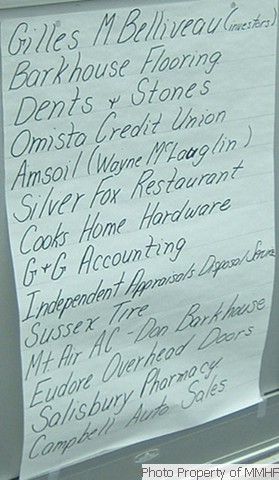 Gilles M Belliveau (investors)
Barkhouse Flooring
Dents & Stones
Omista Credit Union
Amsoil (Wayne McLauglin)
Silver Fox Restaurant
Cooks Home Hardware
G+G Accounting
Independent Appraisals Disposal Service
Sussex Tire
Mt. Air AC - Don Barkhouse
Eudore Overhead Doors
Salisbury Pharmacy
Campbell Auto Sales
Photo Property of MMHF